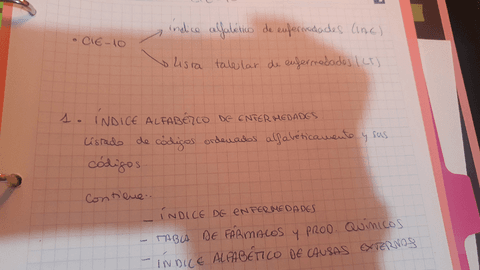 índice alfabético de enfermedades (I.A.E.)
• CIE-10
Lista tabular de enfermedades (LT)
1. ÍNDICE ALFABÉTICO DE ENFERMEDADES
Listado de códigos ordenados alfabéticamente y sus
códigos
Contiene:
— ÍNDICE DE ENFERMEDADES
— TABLA DE FÁRMACOS Y PROD. QUÍMICOS
— ÍNDICE ALFABÉTICO DE CAUSAS EXTERNAS